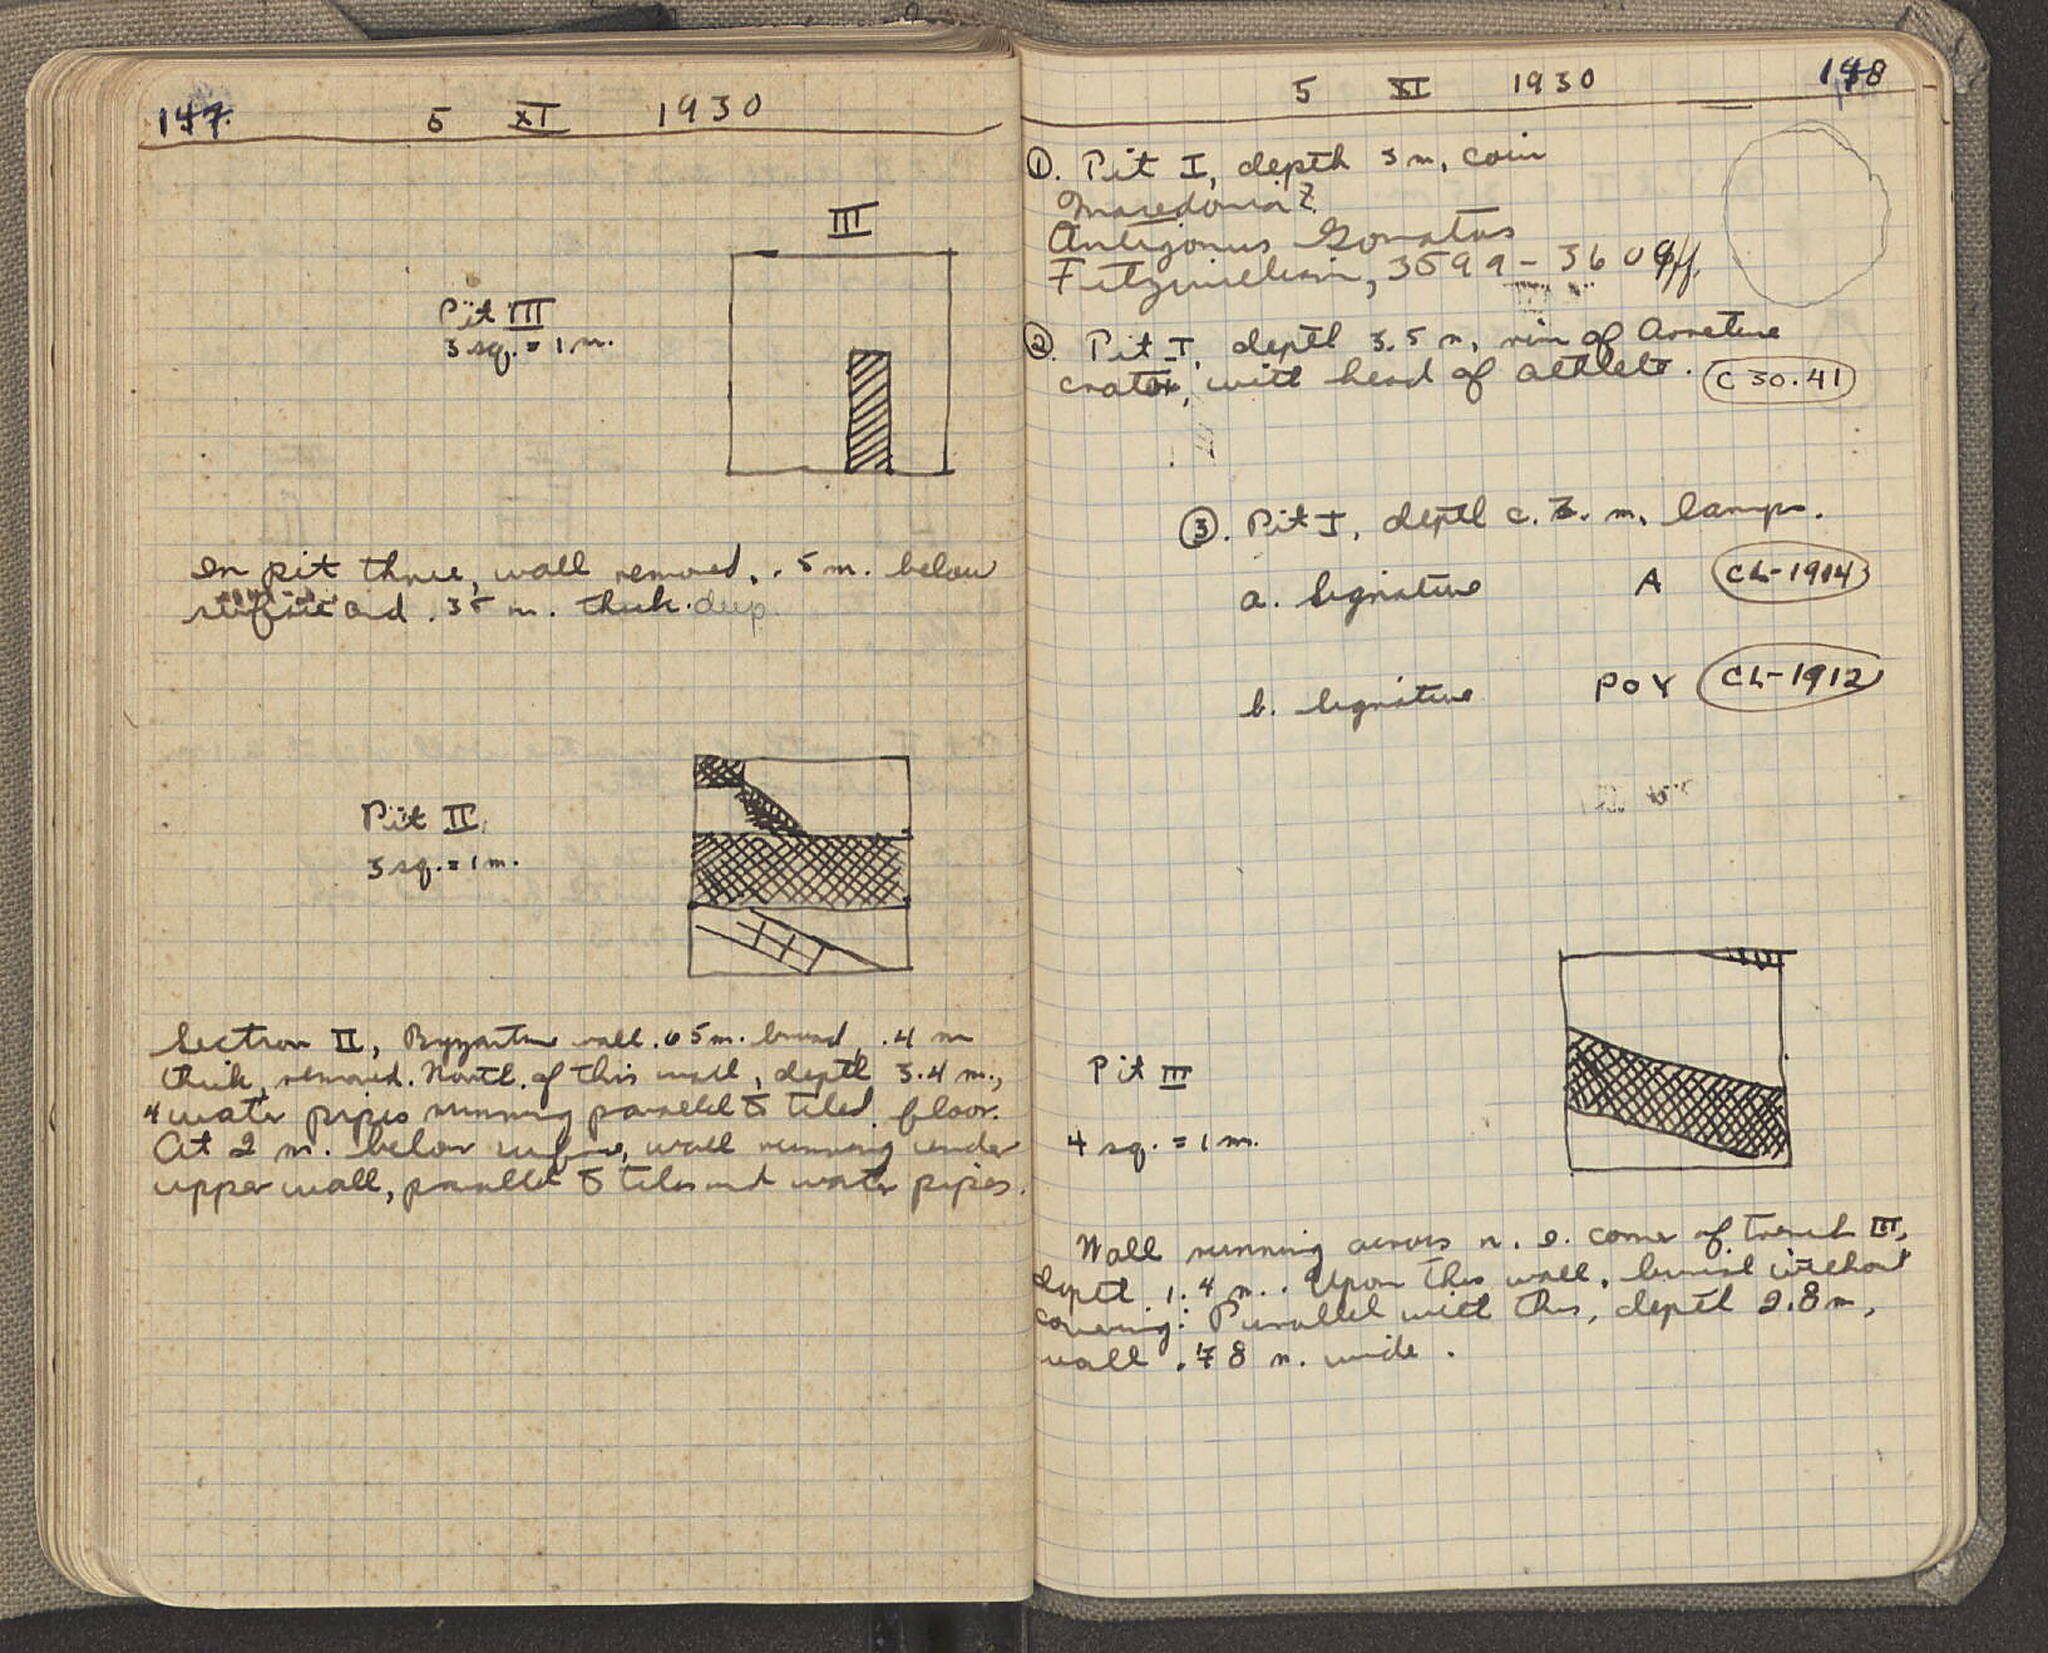 147.
5 XI 1930
III
Pit III
3 sq. = 1 m.
In pit three, wall removed, .5 m. below
surface and .35 m. thick. deep.
Pit II.
3 sq. = 1 m.
Section II, Byzantine wall .65 m. broad, .4 m
thick, removed. North of this wall, depth 3.4 m.,
4 water pipes running parallel to tiled floor.
At 2 m. below surface, wall running under
upper wall, parallel to tiles and water pipes.
5 XI 1930
148
①. Pit I, depth 3 m, coin
Macedonia?
Antigonus Gonatas
Fitzwilliam, 3599 - 3609 ff.
②. Pit I, depth 3.5 m, rim of Arretine
crater, with head of athlete. C 30.41
③. Pit I, depth c. 3. m, lamps.
a. Signature A CL-1914
b. Signature POY CL-1912
Pit III
4 sq. = 1 m.
Wall running across n. e. corner of trench III,
depth 1.4 m.. Upon this wall, burial without
covering: Parallel with this, depth 2.8 m,
wall .78 m. wide.